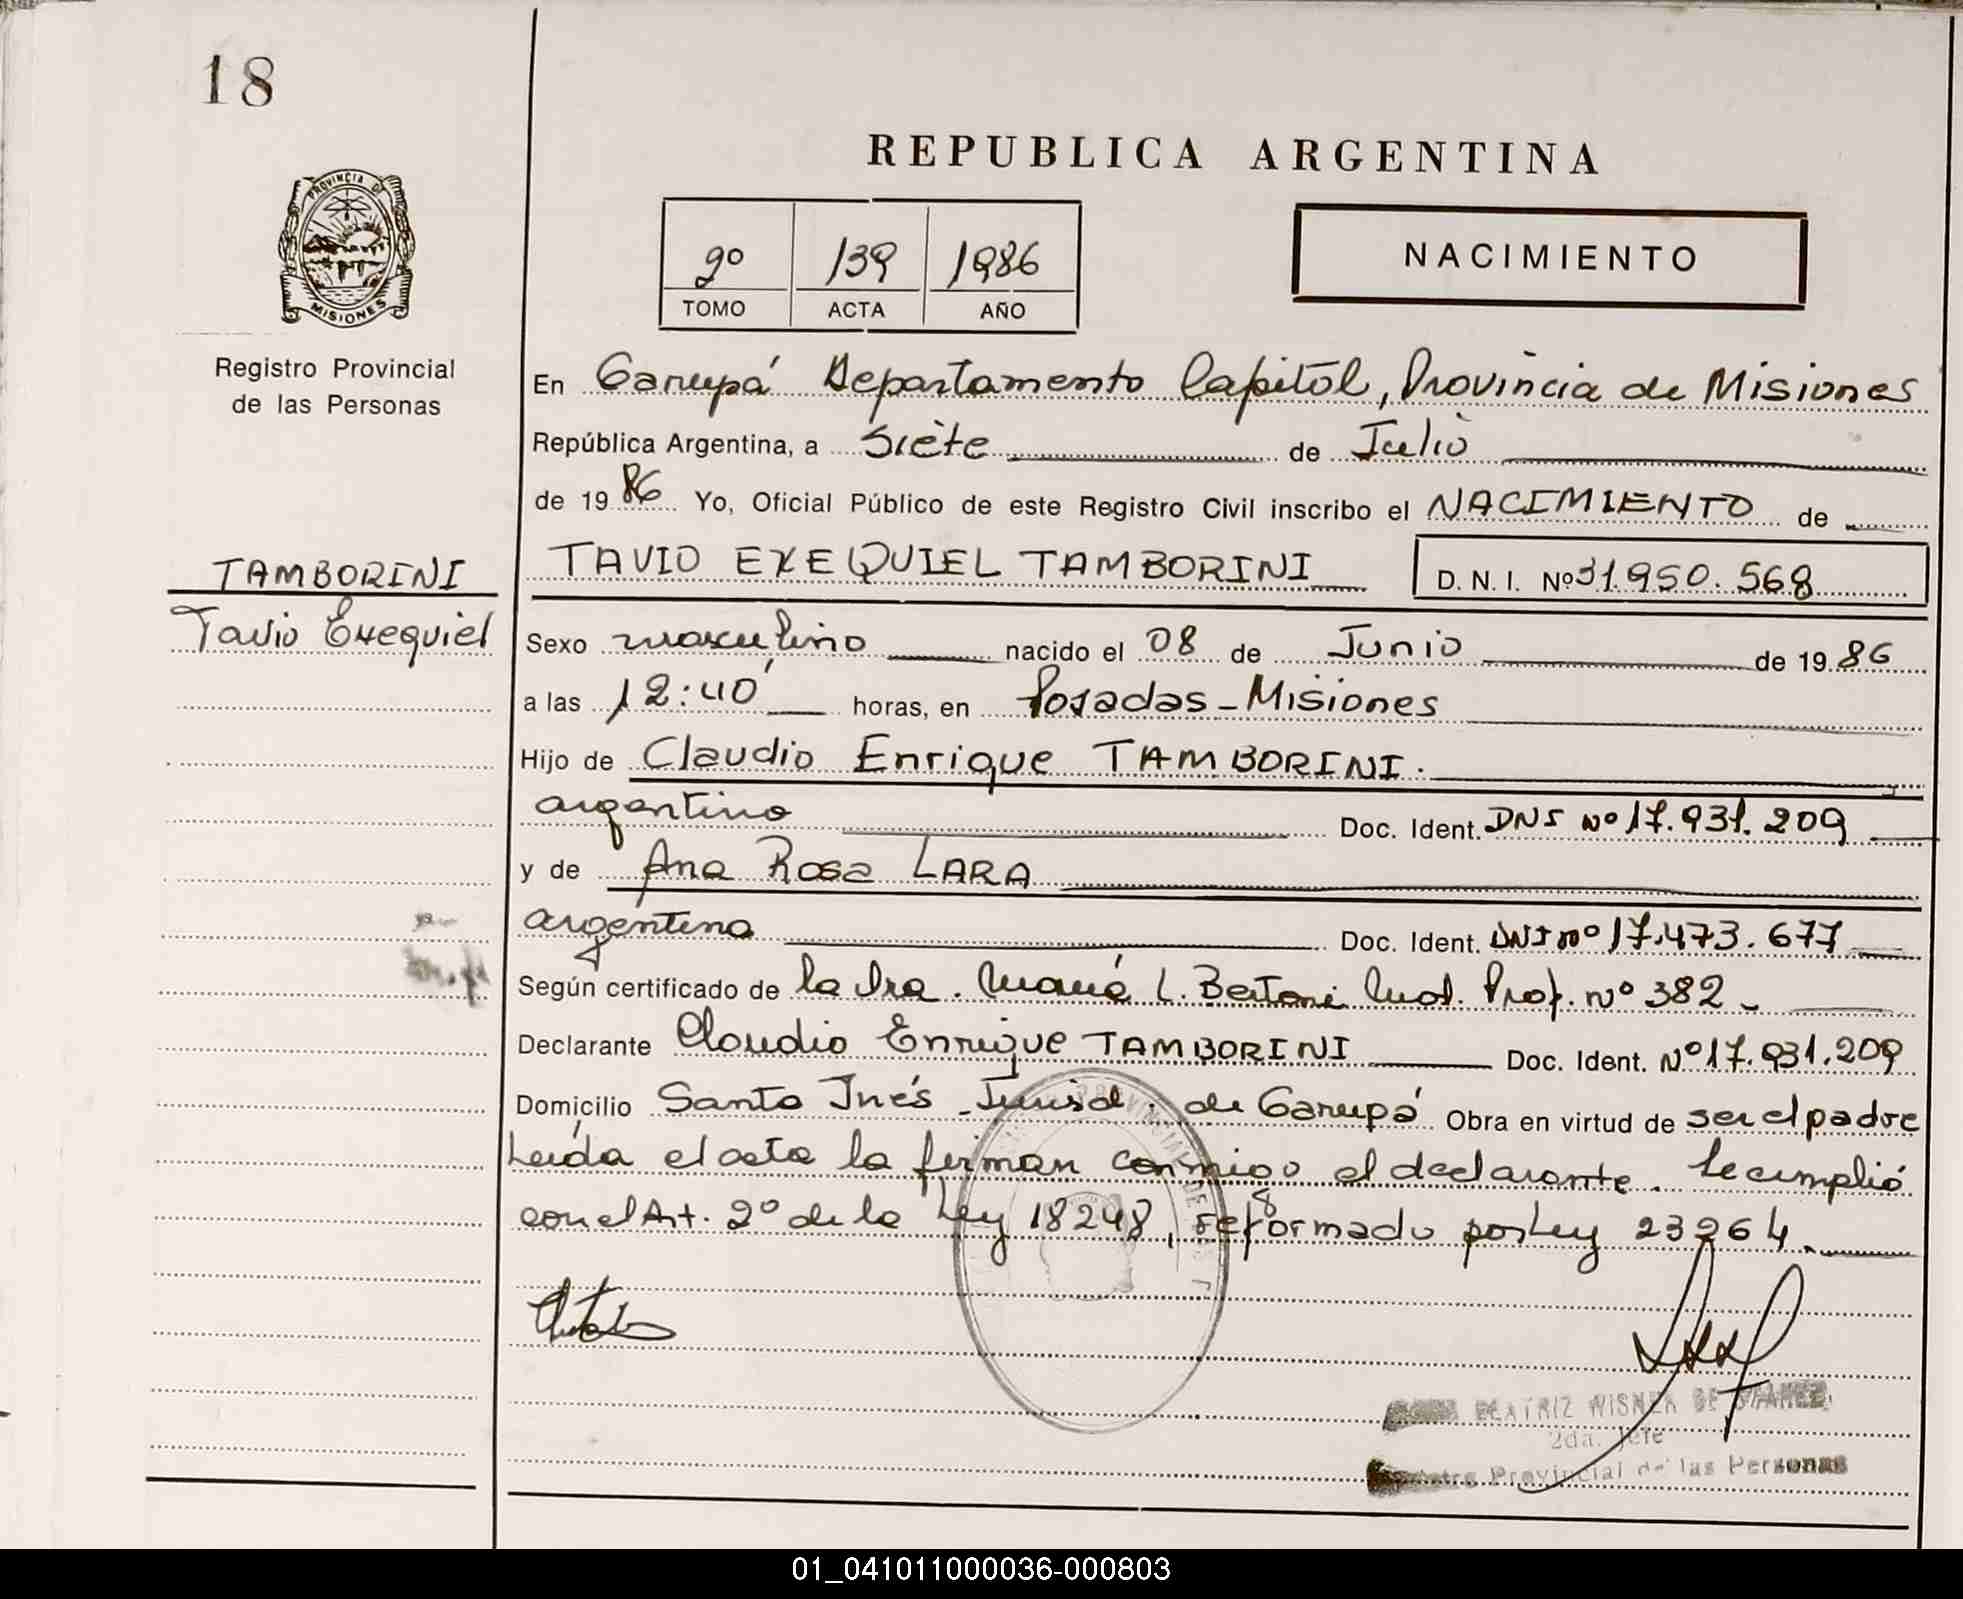 18
REPUBLICA ARGENTINA
PROVINCIA DE
MISIONES
2º 139 1986
TOMO ACTA AÑO
NACIMIENTO
Registro Provincial
de las Personas
En Garupá Departamento Capital, Provincia de Misiones
República Argentina, a Siete de Julio
de 1986 Yo, Oficial Público de este Registro Civil inscribo el NACIMIENTO de
TAMBORINI
Tavio Exequiel
TAVIO EXEQUIEL TAMBORINI D. N. I. Nº 31.950.568
Sexo masculino nacido el 08 de Junio de 1986
a las 12:40 horas, en Posadas - Misiones
Hijo de Claudio Enrique TAMBORINI.
argentino Doc. Ident. DNI Nº 17.931.209
y de Ana Rosa LARA
argentina Doc. Ident. DNI nº 17.473.677
Según certificado de la Dra. María L. Bertoni Mat. Prof. nº 382 -
Declarante Claudio Enrique TAMBORINI Doc. Ident. Nº 17.931.209
Domicilio Santa Inés - Jurisd. de Garupá Obra en virtud de ser el padre
Leída el acta la firman conmigo el declarante. Se cumplió
con el Art. 2º de la Ley 18248, reformado por Ley 23264.
BEATRIZ WISNER DE
2da. Jefe
Registro Provincial de las Personas
01_041011000036-000803